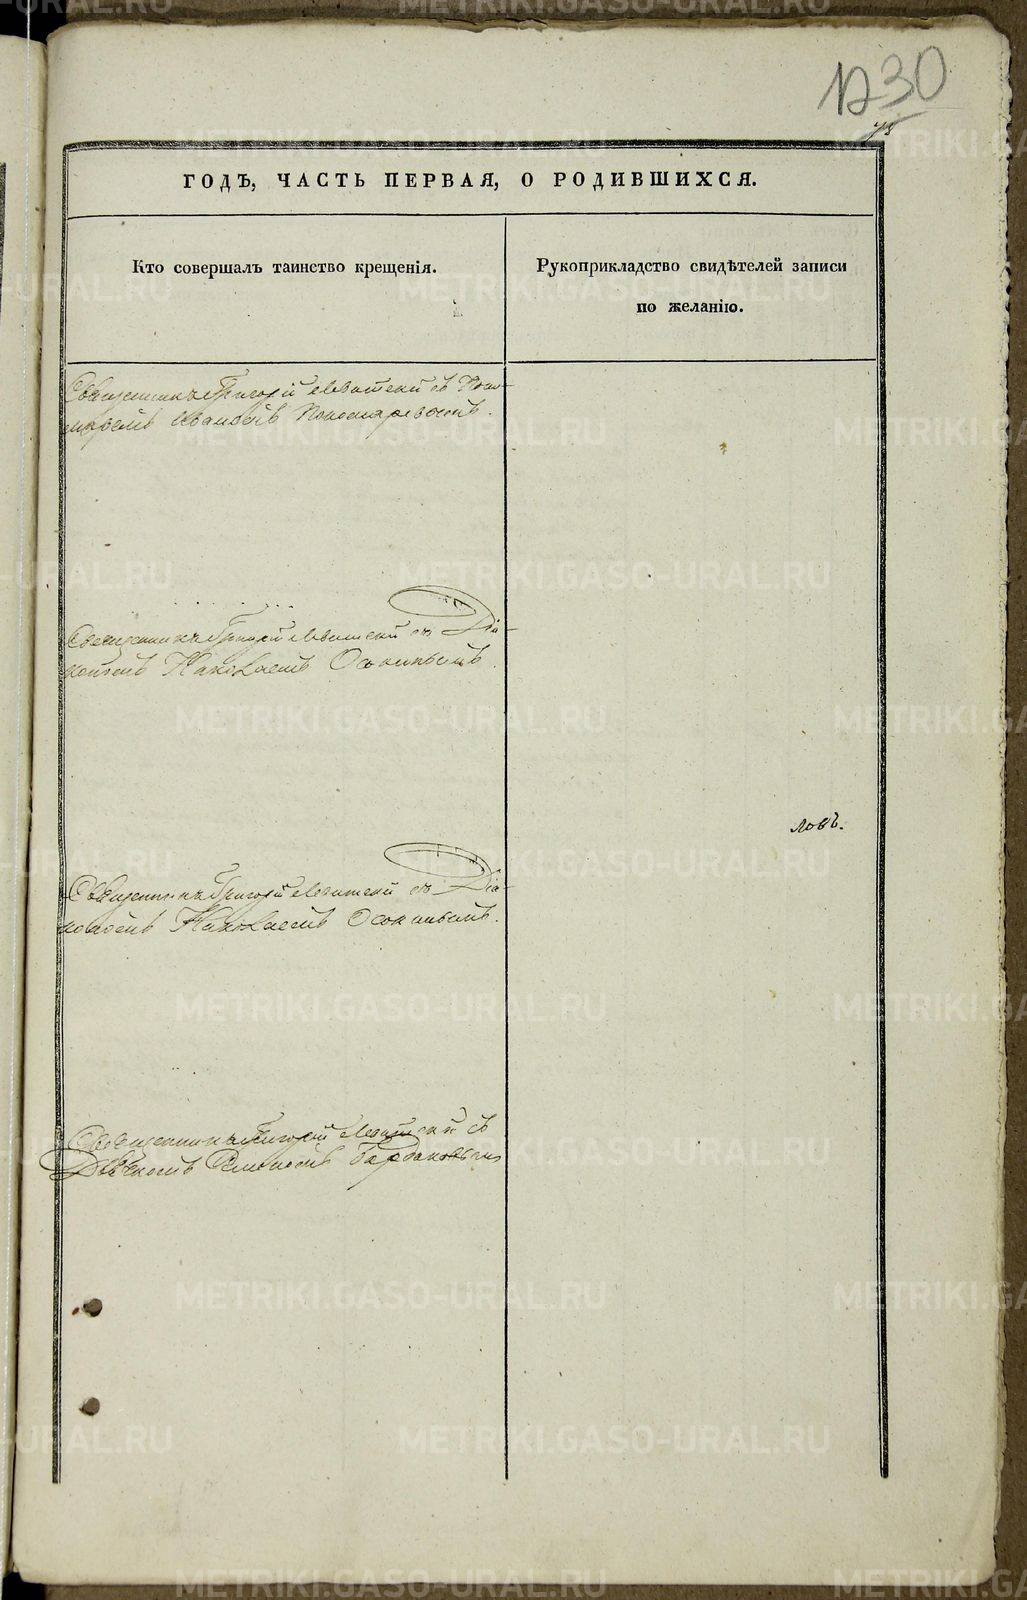 1230
ГОДЪ, ЧАСТЬ ПЕРВАЯ, О РОДИВШИХСЯ.
Кто совершалъ таинство крещенія.
Рукоприкладство свидѣтелей записи
по желанію.
Священникъ Григорій Левитскій съ Поно-
маремъ Иваномъ Пономаревымъ.
Священникъ Григорій Левитскій съ Діа-
кономъ Николаемъ Осокинымъ
ловъ.
Священникъ Григорій Левитскій съ Діа-
кономъ Николаемъ Осокинымъ.
Священникъ Григорій Левитскій съ
METRIKI.GASO-URAL.RU